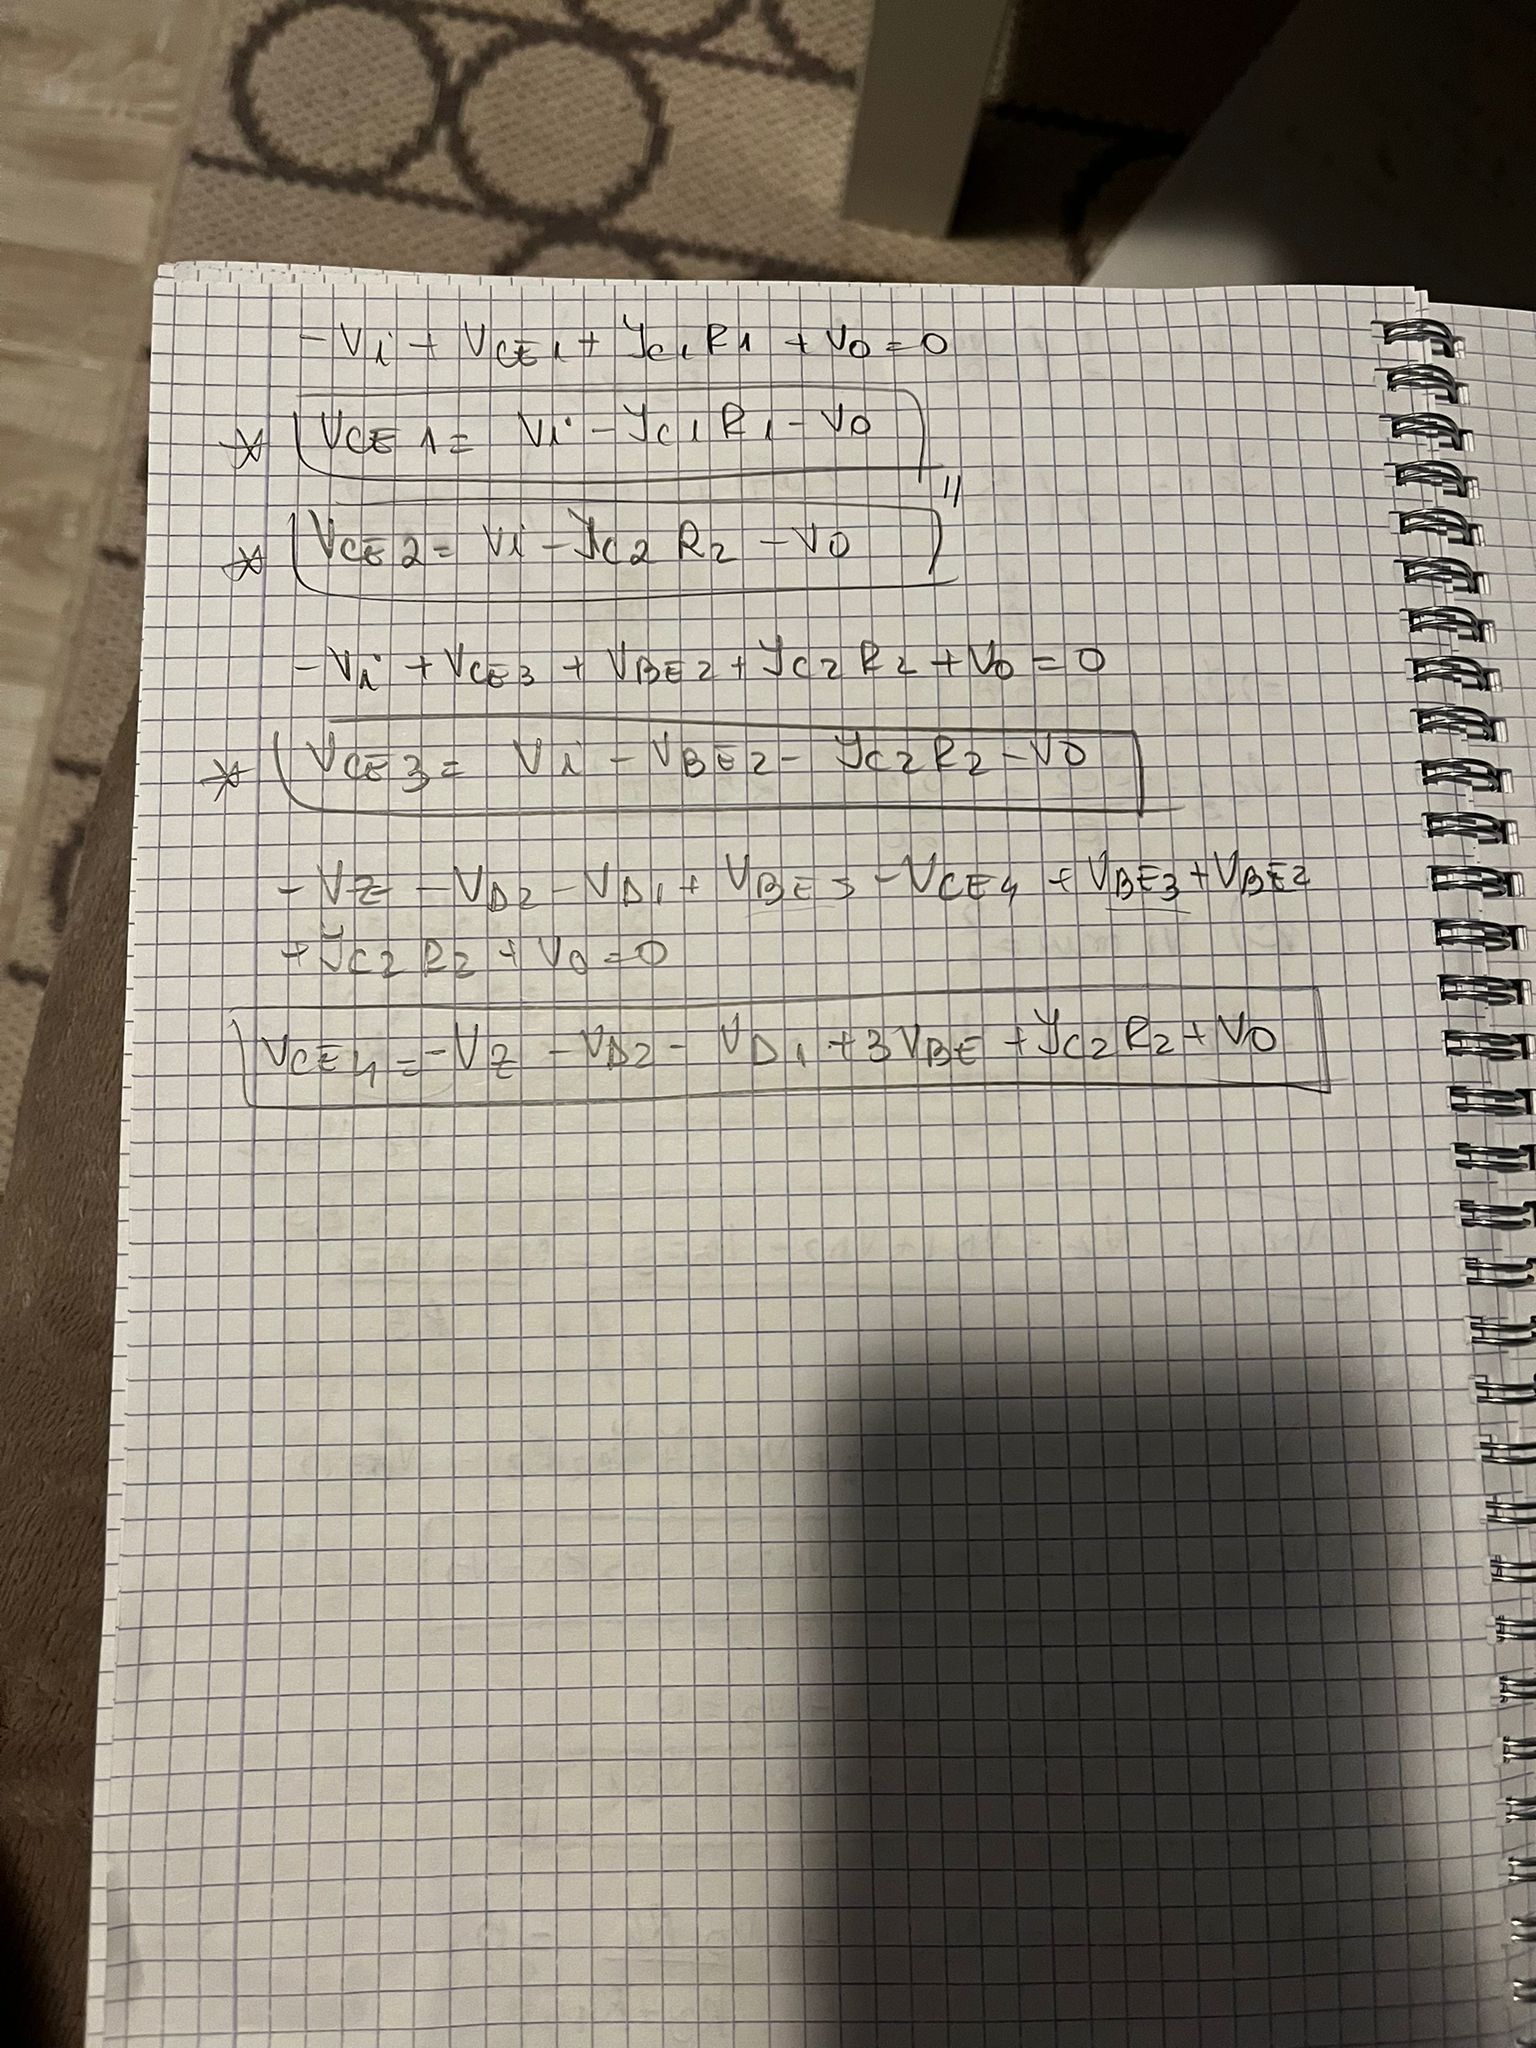 -Vi + VCE1 + IC1R1 + V0 = 0
* VCE1 = Vi - IC1R1 - V0
* VCE2 = Vi - IC2 R2 - V0
-Vi + VCE3 + VBE2 + IC2 R2 + V0 = 0
* VCE3 = Vi - VBE2 - IC2R2 - V0
- VZ - VD2 - VD1 + VBE5 - VCE4 + VBE3 + VBE2
+ IC2 R2 + V0 = 0
VCE4 = -VZ - VD2 - VD1 + 3VBE + IC2R2 + V0